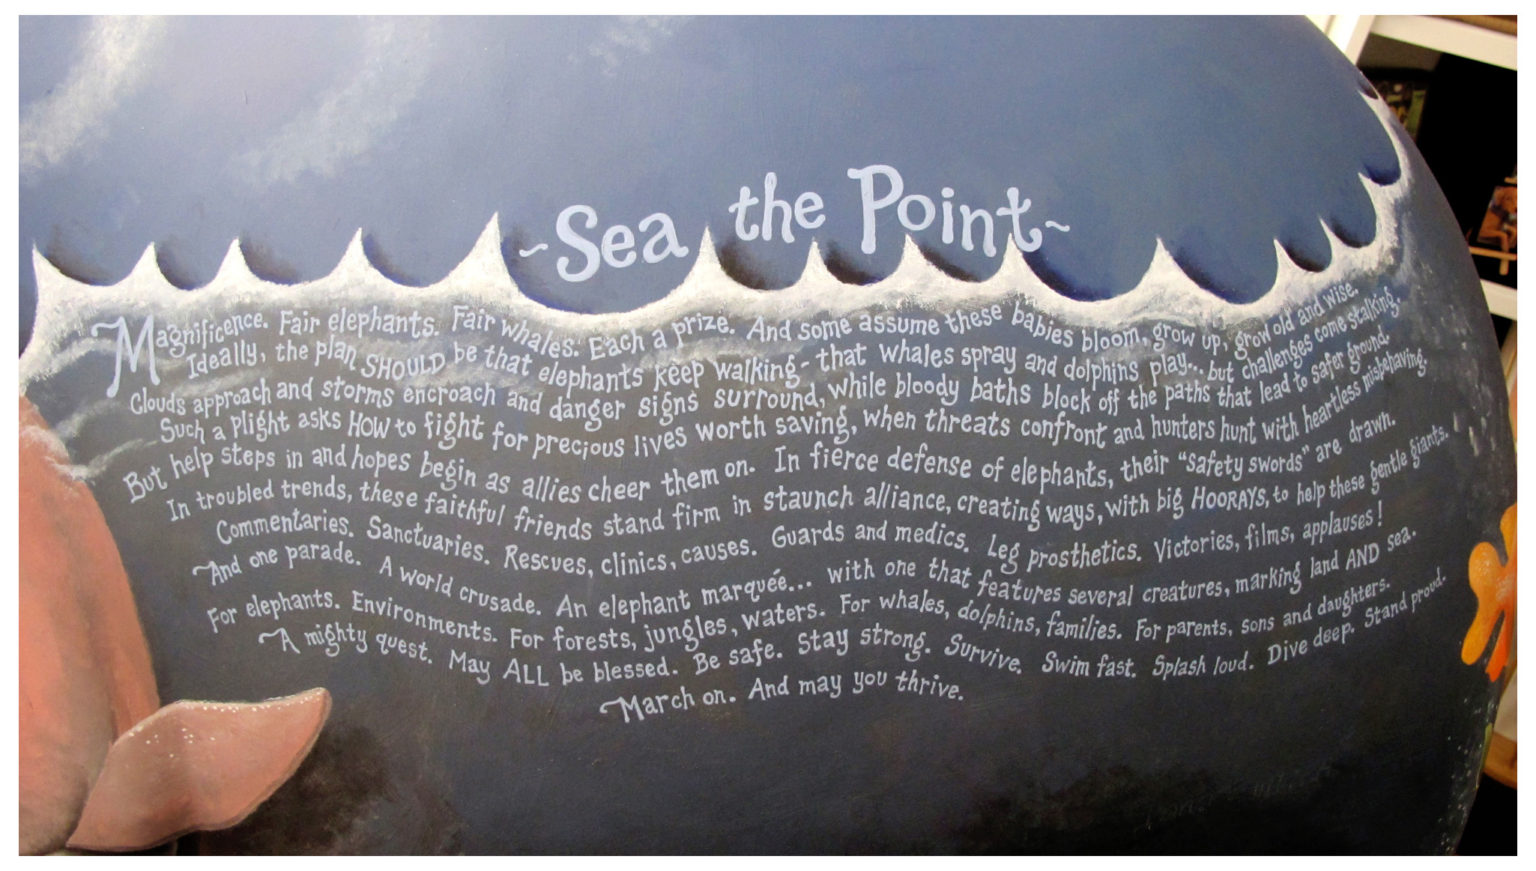 ~Sea the Point~
Magnificence. Fair elephants. Fair whales. Each a prize. And some assume these babies bloom, grow up, grow old and wise.
Ideally, the plan SHOULD be that elephants keep walking- that whales spray and dolphins play... but challenges come stalking.
Clouds approach and storms encroach and danger signs surround, while bloody baths block off the paths that lead to safer ground.
Such a plight asks HOW to fight for precious lives worth saving, when threats confront and hunters hunt with heartless misbehaving.
But help steps in and hopes begin as allies cheer them on. In fierce defense of elephants, their "safety swords" are drawn.
In troubled trends, these faithful friends stand firm in staunch alliance, creating ways, with big HOORAYS, to help these gentle giants.
Commentaries. Sanctuaries. Rescues, clinics, causes. Guards and medics. Leg prosthetics. Victories, films, applauses!
And one parade. A world crusade. An elephant marquée... with one that features several creatures, marking land AND sea.
For elephants. Environments. For forests, jungles, waters. For whales, dolphins, families. For parents, sons and daughters.
A mighty quest. May ALL be blessed. Be safe. Stay strong. Survive. Swim fast. Splash loud. Dive deep. Stand proud.
March on. And may you thrive.